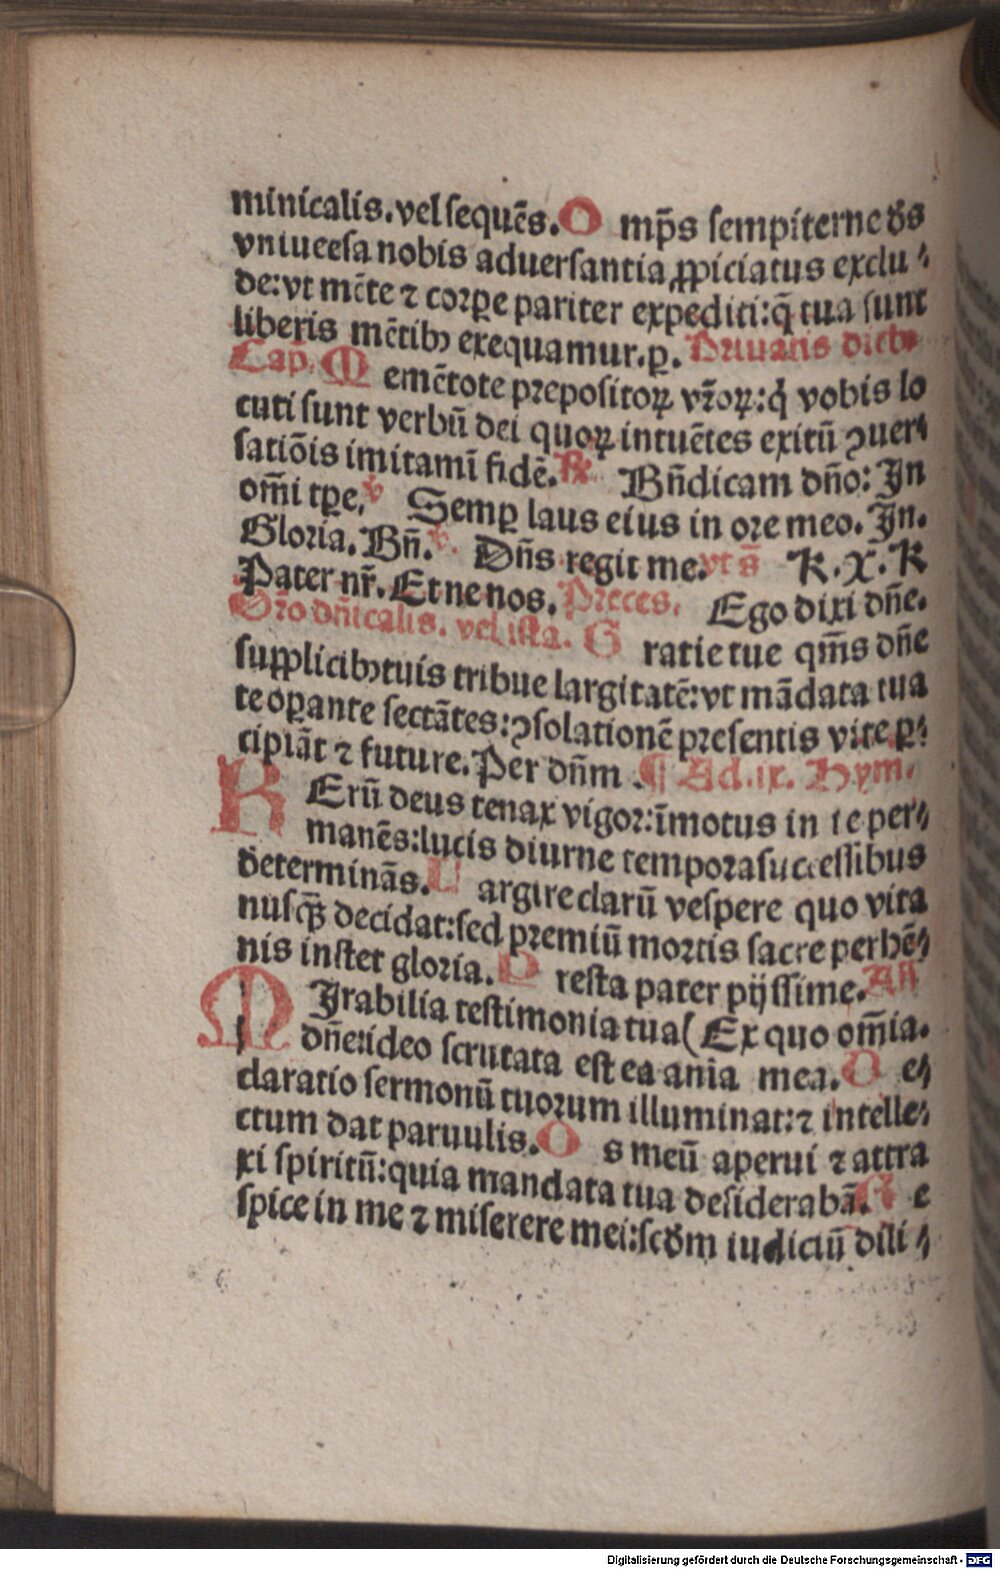 minicalis. vel sequēs. O mp̄s sempiterne d̄s
vniueesa nobis aduersantia ꝓpiciatus exclu⸗
de: vt mēte ⁊ corꝑe pariter expediti: q̄ tua sunt
liberis mētibꝫ exequamur. p. Priuatis dieb
Cap. M emētote prepositoꝝ vr̄oꝝ: q̇ vobis lo
cuti sunt verbū dei quoꝝ intuētes exitū ꝯuer⸗
satiōis imitami fidē. ℟ Bn̄dicam dn̄o: In
om̄i tꝑe. ℣ Semꝑ laus eius in ore meo. In.
Gloria. Bn̄. ℣. Dn̄s regit me. vt s̄ K. X. K
Pater nr̄. Et ne nos. Preces. Ego dixi dn̄e.
Or̄o dn̄icalis. vel ista. G ratie tue qm̄s dn̄e
supplicibꝫ tuis tribue largitatē: vt mādata tua
te oꝑante sectātes: ꝯsolationē presentis vite ꝑ⸗
cipiāt ⁊ future. Per dn̄m . ¶ Ad .ix. Hym.
R Erū deus tenax vigor: īmotus in te per⸗
manēs: lucis diurne tempora successibus
determinās. L argire clarū vespere quo vita
nusqꝫ̄ decidat: sed premiū mortis sacre perhē⸗
nis instet gloria. P resta pater pijssime. An̄
M Irabilia testimonia tua ( Ex quo om̄ia.
dn̄e: ideo scrutata est ea ania mea. D e⸗
claratio sermonū tuorum illuminat: ⁊ intelle⸗
ctum dat paruulis. O s meū aperui ⁊ attra
xi spiritū: quia mandata tua desiderabā. A e
spice in me ⁊ miserere mei: scd̄m iudiciū dili⸗
Digitalisierung gefördert durch die Deutsche Forschungsgemeinschaft - DFG